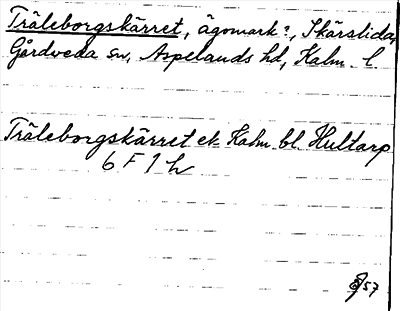 Träleborgskärret, ägomark?, Skärslida,
Gårdveda sn, Aspelands hd, Kalm. l
Träleborgskärret ek Kalm. bl. Hultarp
6 F 1 h
57